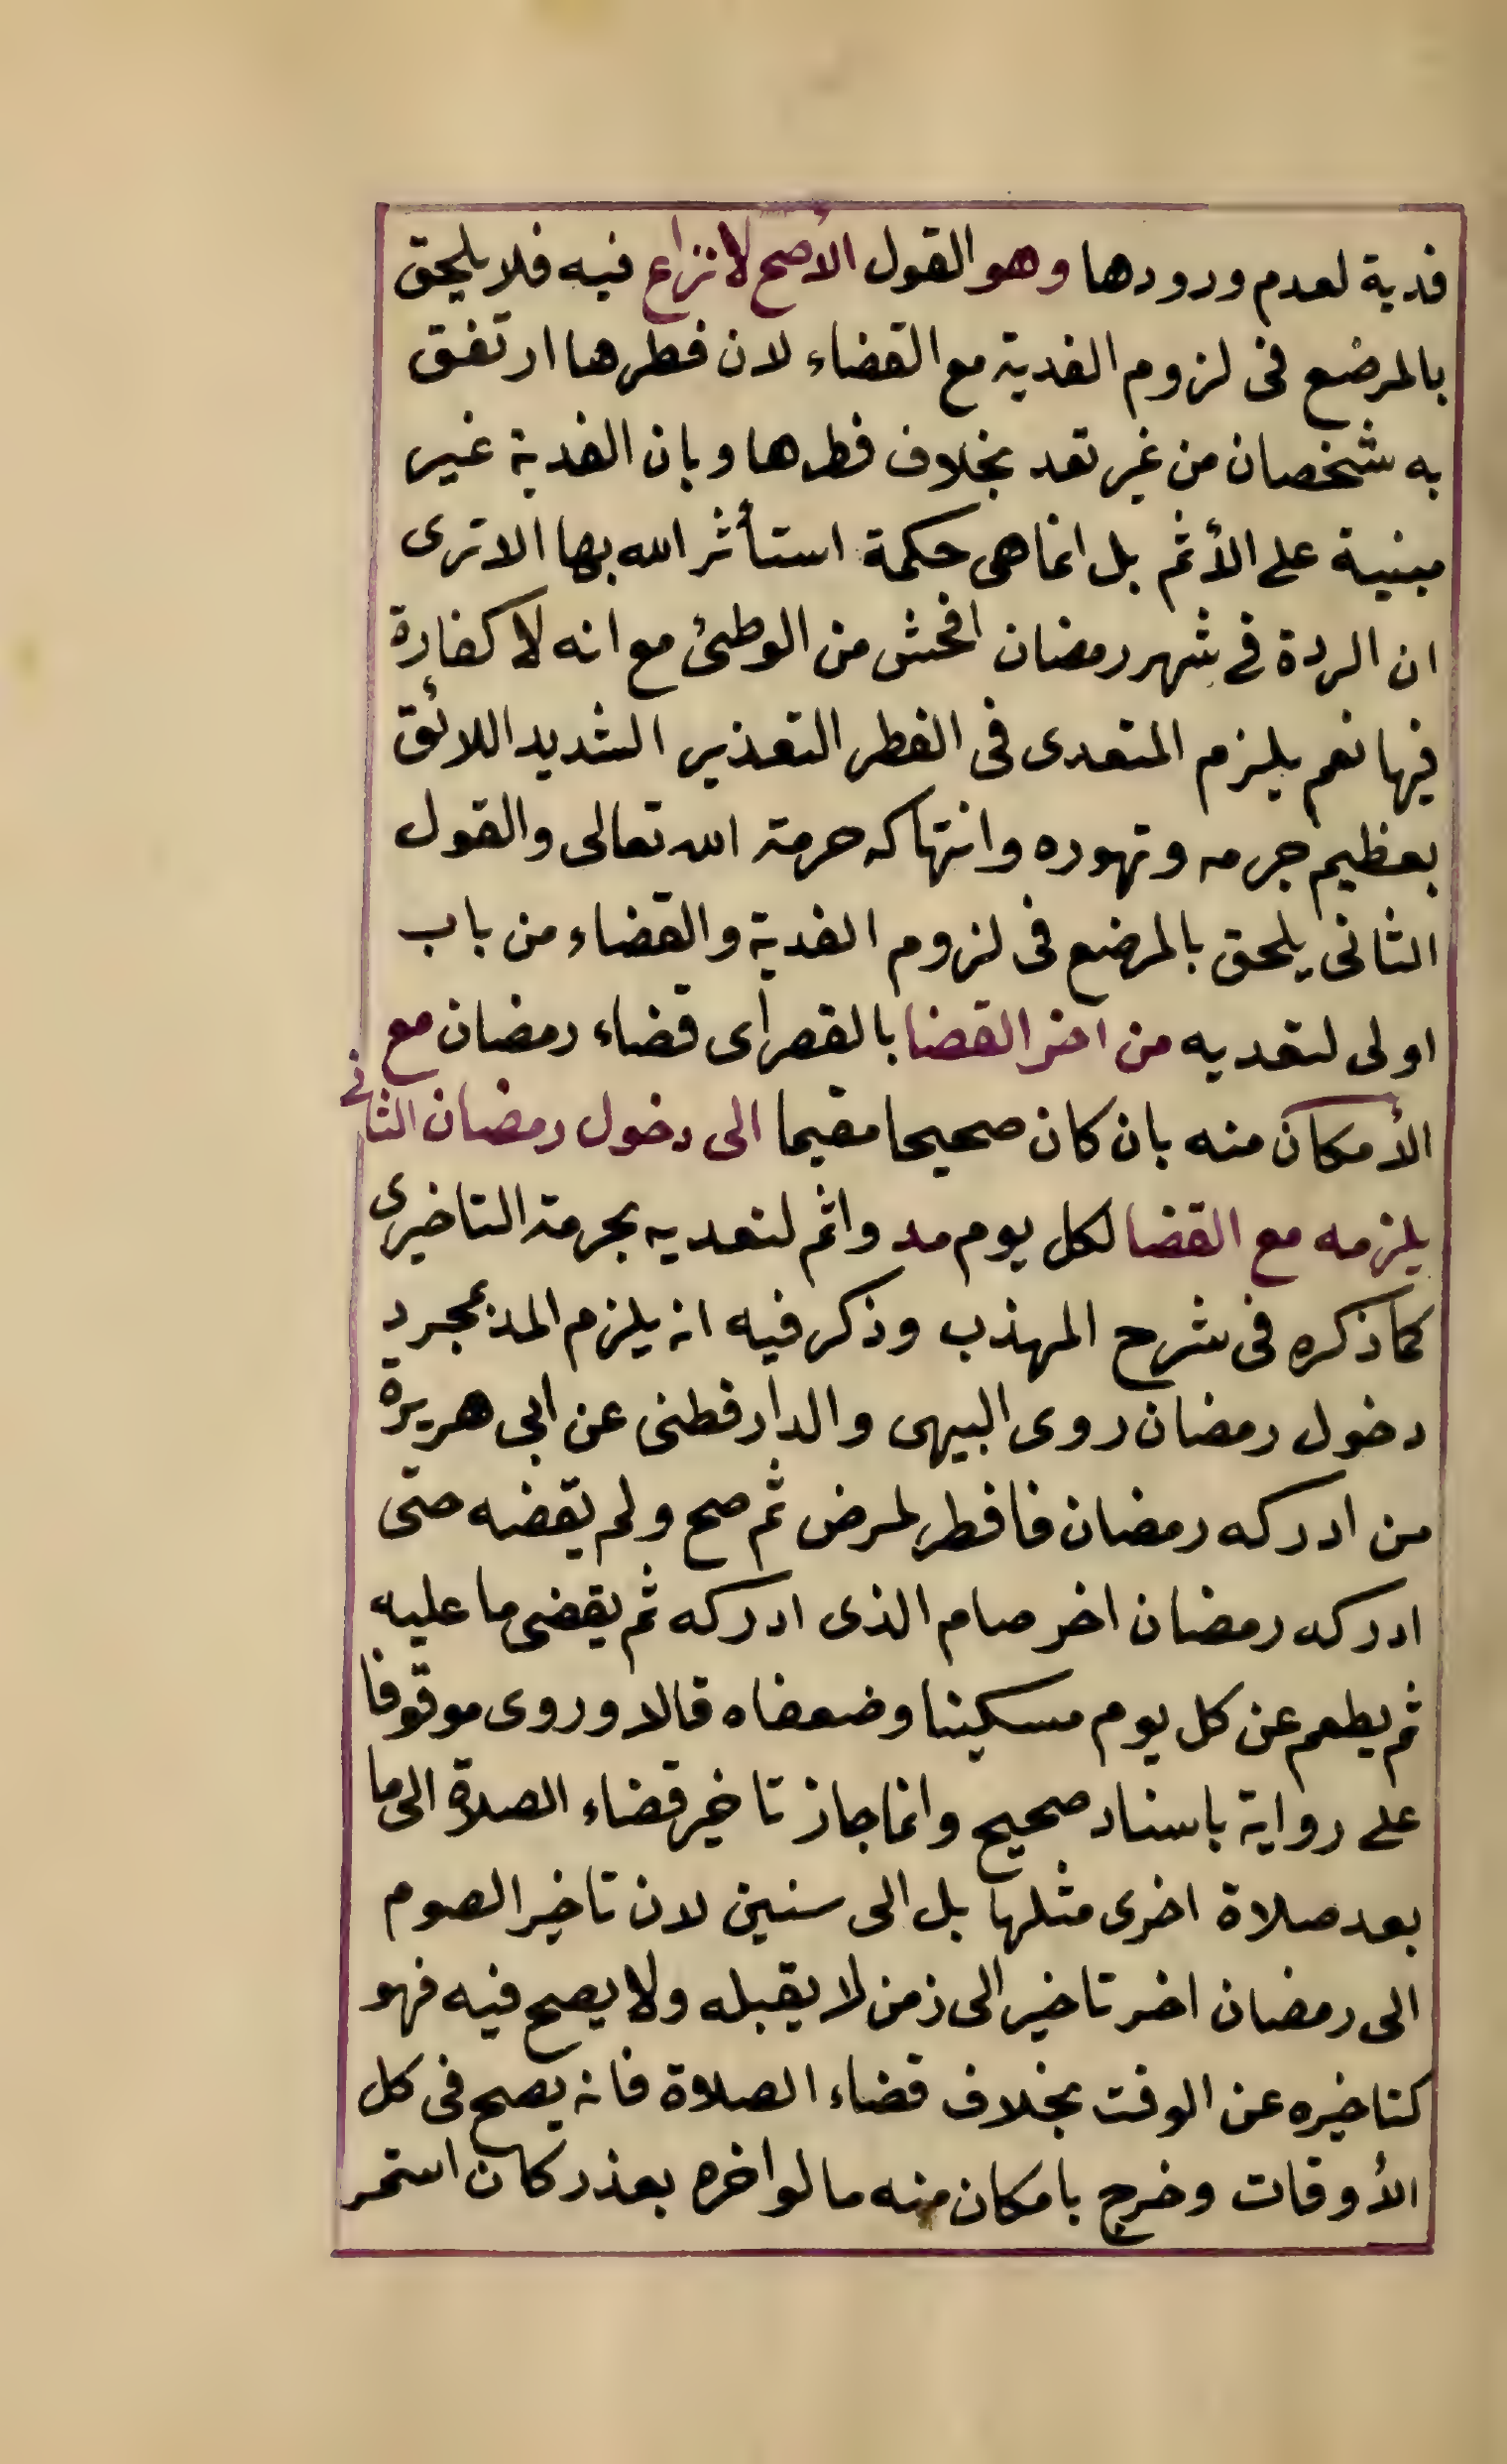 فدية لعدم ورودها وهو القول الأصح لا نزاع فيه فلا يلحق
بالمرضع فى لزوم الفدية مع القضاء لان فطرها ارتفق
به شخصان من غير تعد بخلاف فطرها وبان الفدية غير
مبنية على الأثم بل انما هى حكمة استأثر الله بها الا ترى
ان الردة فى شهر رمضان افحش من الوطئ مع انه لا كفارة
فيها نعم يلزم المتعدى فى الفطر التعذير الشديد اللائق
بعظيم جرمه وتهوره وانتهاكه حرمة الله تعالى والقول
الثانى يلحق بالمرضع فى لزوم الفدية والقضاء من باب
اولى لتعديه من اخر القضا بالقصر اى قضاء رمضان مع
الأمكان منه بان كان صحيحا مقيما الى دخول رمضان الثانى
يلزمه مع القضا لكل يوم مد واثم لتعديه بحرمة التاخيرى
كما ذكره فى شرح المهذب وذكر فيه انه يلزم المد بمجرد
دخول رمضان روى البيهى والدارفطنى عن ابى هريرة
من ادركه رمضان فافطر لمرض ثم صح ولم يقضه حتى
ادركه رمضان اخر صام الذى ادركه ثم يقضى ما عليه
ثم يطعم عن كل يوم مسكينا وضعفاه قالا وروى موقوفا
على رواية باسناد صحيح وانما جاز تاخير قضاء الصلاة الى ما
بعد صلاة اخرى مثلها بل الى سنين لان تاخير الصوم
الى رمضان اخر تاخير الى زمن لا يقبله ولا يصح فيه فهو
كتاخيره عن الوقت بخلاف قضاء الصلاة فانه يصح فى كل
الأوقات وخرج بامكان منه ما لو اخره بعذر كان استمر